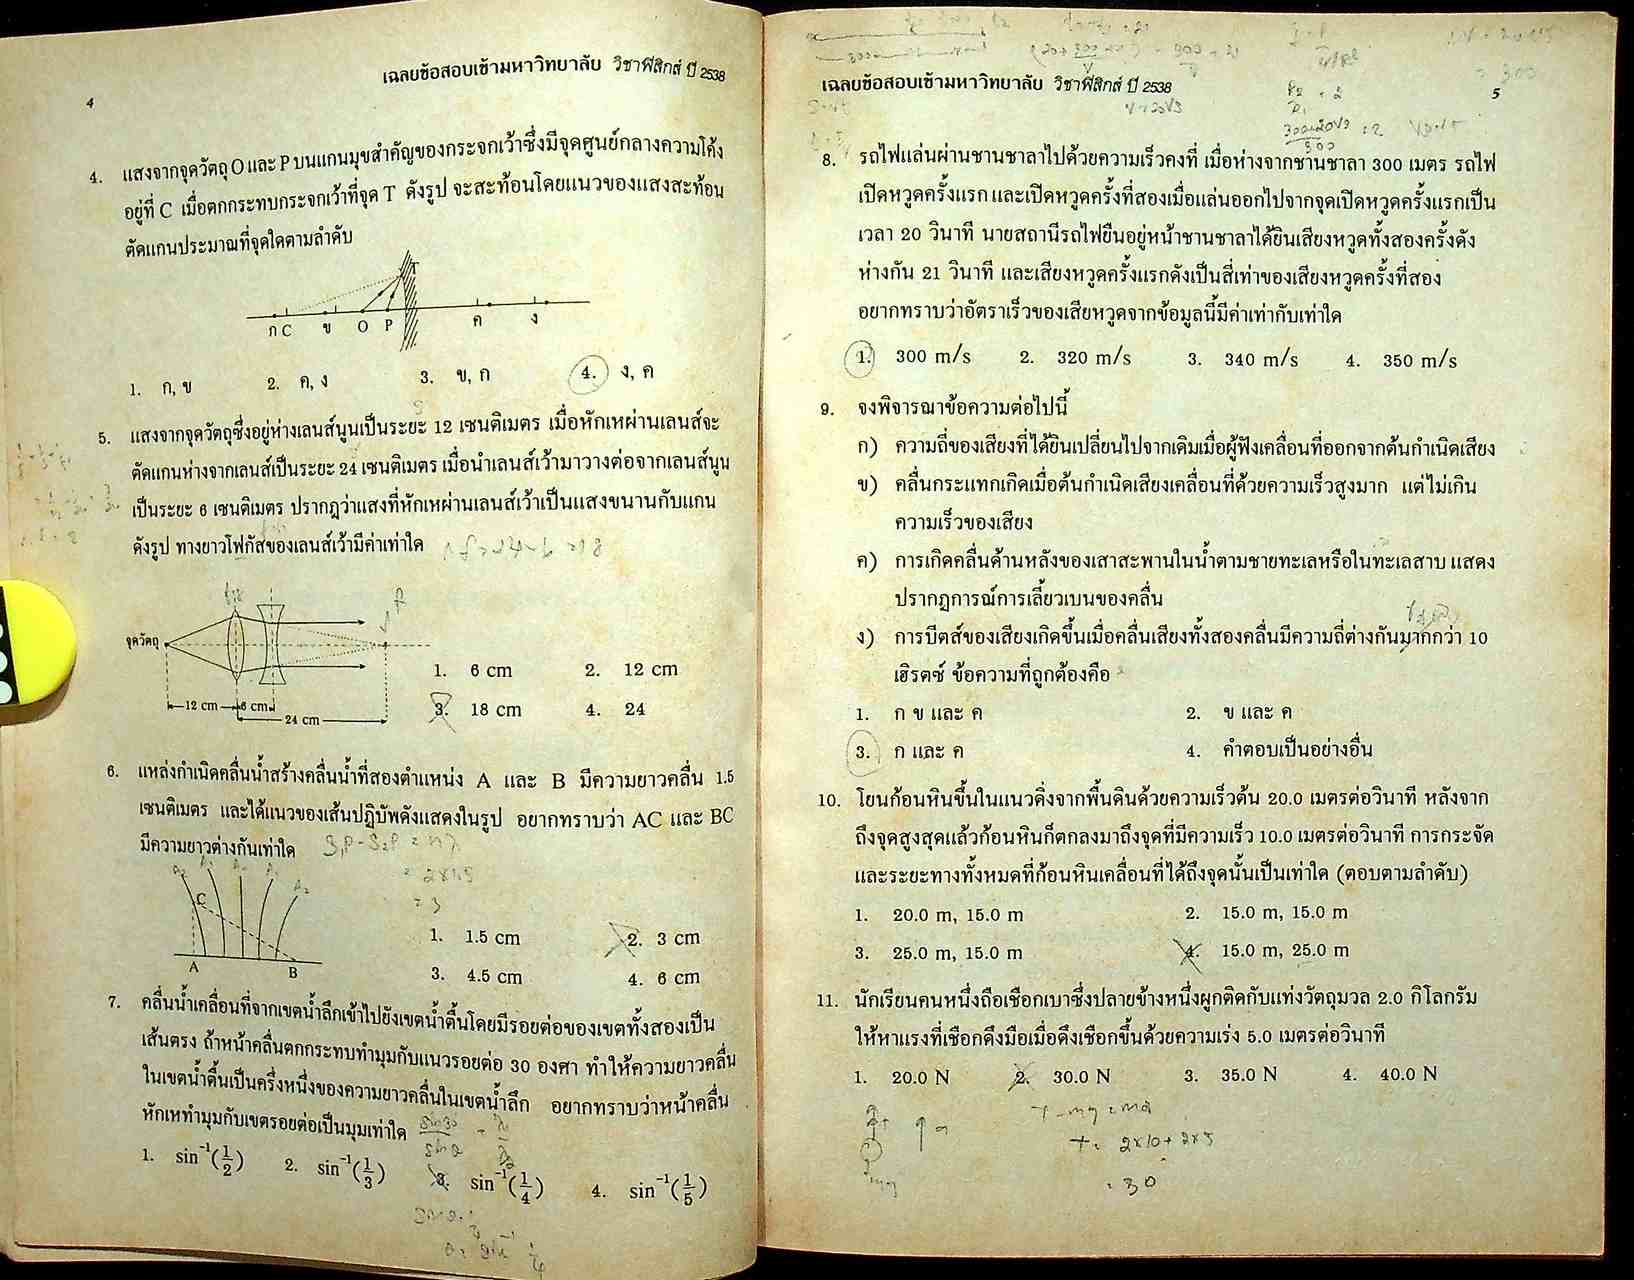 เฉลยข้อสอบเข้ามหาวิทยาลัย วิชาฟิสิกส์ ปี 2538
4
4. แสงจากจุดวัตถุ O และ P บนแกนมุขสำคัญของกระจกเว้าซึ่งมีจุดศูนย์กลางความโค้ง
อยู่ที่ C เมื่อตกกระทบกระจกเว้าที่จุด T ดังรูป จะสะท้อนโดยแนวของแสงสะท้อน
ตัดแกนประมาณที่จุดใดตามลำดับ
T
ก C ข O P ค ง
1. ก, ข 2. ค, ง 3. ข, ก 4. ง, ค
5. แสงจากจุดวัตถุซึ่งอยู่ห่างเลนส์นูนเป็นระยะ 12 เซนติเมตร เมื่อหักเหผ่านเลนส์จะ
ตัดแกนห่างจากเลนส์เป็นระยะ 24 เซนติเมตร เมื่อนำเลนส์เว้ามาวางต่อจากเลนส์นูน
เป็นระยะ 6 เซนติเมตร ปรากฏว่าแสงที่หักเหผ่านเลนส์เว้าเป็นแสงขนานกับแกน
ดังรูป ทางยาวโฟกัสของเลนส์เว้ามีค่าเท่าใด
f = 24 - 6 = 18
จุดวัตถุ
12 cm 6 cm
24 cm
1. 6 cm 2. 12 cm
3. 18 cm 4. 24
6. แหล่งกำเนิดคลื่นน้ำสร้างคลื่นน้ำที่สองตำแหน่ง A และ B มีความยาวคลื่น 1.5
เซนติเมตร และได้แนวของเส้นปฏิบัพดังแสดงในรูป อยากทราบว่า AC และ BC
มีความยาวต่างกันเท่าใด
S₁P - S₂P = nλ
= 2×1.5
= 3
A₂ A₁ A₀ A₁ A₂
C
A B
1. 1.5 cm 2. 3 cm
3. 4.5 cm 4. 6 cm
7. คลื่นน้ำเคลื่อนที่จากเขตน้ำลึกเข้าไปยังเขตน้ำตื้นโดยมีรอยต่อของเขตทั้งสองเป็น
เส้นตรง ถ้าหน้าคลื่นตกกระทบทำมุมกับแนวรอยต่อ 30 องศา ทำให้ความยาวคลื่น
ในเขตน้ำตื้นเป็นครึ่งหนึ่งของความยาวคลื่นในเขตน้ำลึก อยากทราบว่าหน้าคลื่น
หักเหทำมุมกับเขตรอยต่อเป็นมุมเท่าใด
1. sin⁻¹(1/2) 2. sin⁻¹(1/3) 3. sin⁻¹(1/4) 4. sin⁻¹(1/5)
เฉลยข้อสอบเข้ามหาวิทยาลัย วิชาฟิสิกส์ ปี 2538
5
8. รถไฟแล่นผ่านชานชาลาไปด้วยความเร็วคงที่ เมื่อห่างจากชานชาลา 300 เมตร รถไฟ
เปิดหวูดครั้งแรก และเปิดหวูดครั้งที่สองเมื่อแล่นออกไปจากจุดเปิดหวูดครั้งแรกเป็น
เวลา 20 วินาที นายสถานีรถไฟยืนอยู่หน้าชานชาลาได้ยินเสียงหวูดทั้งสองครั้งดัง
ห่างกัน 21 วินาที และเสียงหวูดครั้งแรกดังเป็นสี่เท่าของเสียงหวูดครั้งที่สอง
อยากทราบว่าอัตราเร็วของเสียหวูดจากข้อมูลนี้มีค่าเท่ากับเท่าใด
1. 300 m/s 2. 320 m/s 3. 340 m/s 4. 350 m/s
9. จงพิจารณาข้อความต่อไปนี้
ก) ความถี่ของเสียงที่ได้ยินเปลี่ยนไปจากเดิมเมื่อผู้ฟังเคลื่อนที่ออกจากต้นกำเนิดเสียง
ข) คลื่นกระแทกเกิดเมื่อต้นกำเนิดเสียงเคลื่อนที่ด้วยความเร็วสูงมาก แต่ไม่เกิน
ความเร็วของเสียง
ค) การเกิดคลื่นด้านหลังของเสาสะพานในน้ำตามชายทะเลหรือในทะเลสาบ แสดง
ปรากฏการณ์การเลี้ยวเบนของคลื่น
ง) การบีตส์ของเสียงเกิดขึ้นเมื่อคลื่นเสียงทั้งสองคลื่นมีความถี่ต่างกันมากกว่า 10
เฮิรตซ์ ข้อความที่ถูกต้องคือ
1. ก ข และ ค 2. ข และ ค
3. ก และ ค 4. คำตอบเป็นอย่างอื่น
10. โยนก้อนหินขึ้นในแนวดิ่งจากพื้นดินด้วยความเร็วต้น 20.0 เมตรต่อวินาที หลังจาก
ถึงจุดสูงสุดแล้วก้อนหินก็ตกลงมาถึงจุดที่มีความเร็ว 10.0 เมตรต่อวินาที การกระจัด
และระยะทางทั้งหมดที่ก้อนหินเคลื่อนที่ได้ถึงจุดนั้นเป็นเท่าใด (ตอบตามลำดับ)
1. 20.0 m, 15.0 m 2. 15.0 m, 15.0 m
3. 25.0 m, 15.0 m 4. 15.0 m, 25.0 m
11. นักเรียนคนหนึ่งถือเชือกเบาซึ่งปลายข้างหนึ่งผูกติดกับแท่งวัตถุมวล 2.0 กิโลกรัม
ให้หาแรงที่เชือกดึงมือเมื่อดึงเชือกขึ้นด้วยความเร่ง 5.0 เมตรต่อวินาที
1. 20.0 N 2. 30.0 N 3. 35.0 N 4. 40.0 N
T - mg = ma
T = 2×10 + 2×5
= 30